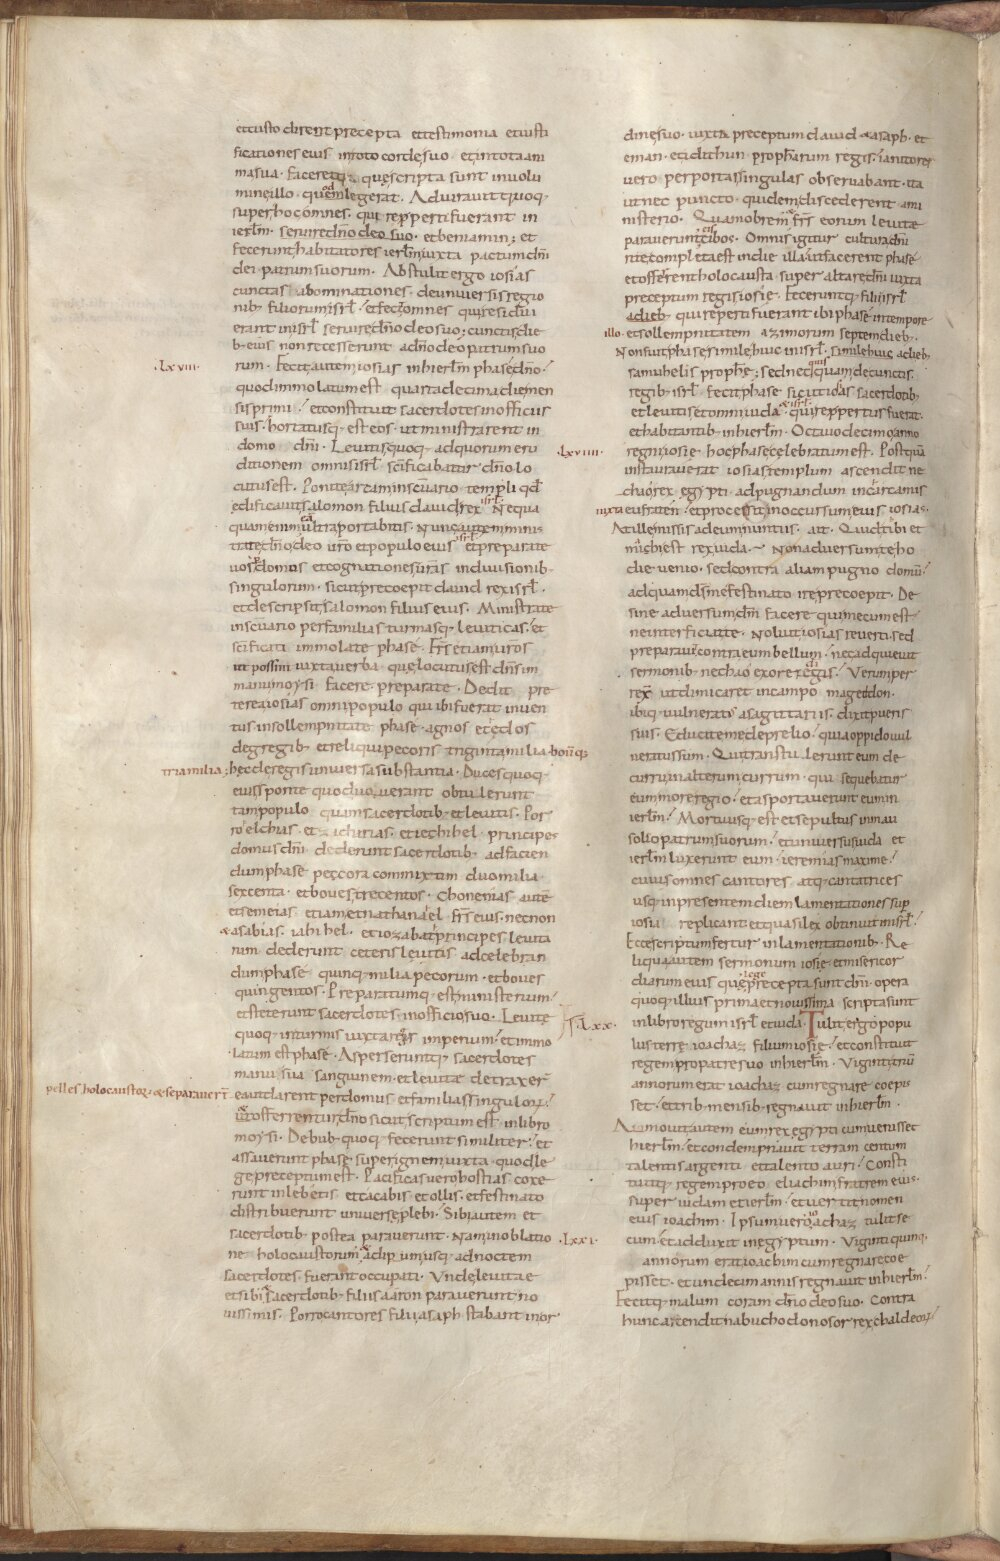 et custodirent precepta et testimonia et iusti
ficationes eius in toto corde suo et in tota ani
ma sua. facerentq; quę scripta sunt in volu
mine illo. quod legerat. Adiuravit quoq;
super hoc omnes. qui repperti fuerant in
ierlm̄. servire dn̄o deo suo. et beniamin; et
fecerunt habitatores ierlm̄ iuxta pactum dn̄i
dei patrum suorum. Abstulit ergo iosias
cunctas abominationes. de universis regio
nib; filiorum isrl̄. et fecit omnes qui residui
erant in isrl̄ servire dn̄o deo suo; cunctis die
b; eius non recesserunt a dn̄o deo patrum suo
.Lxviii.
rum. Fecit autem iosias in hierlm̄ phase dn̄o.
quod immolatum est quarta decima die men
sis primi. et constituit sacerdotes in officiis
suis. hortatusq; est eos. ut ministrarent in
domo dn̄i. Levitis quoq; ad quorum eru
ditionem omnis isrl̄ sc̄ificabatur dn̄o lo
cutus est. Ponite arcam in sc̄uario templi qd̄
edificavit salomon filius david rex isrl̄ Nequa
quam enim eā ultra portabitis. Nunc autem minis
trate dn̄o deo vr̄o et populo eius isrl̄ et preparate
vos per domos et cognationes vr̄as in divisionib;
singulorum. sicut precoepit david rex isrl̄.
et descripsit salomon filius eius. Ministrate
in sc̄uario per familias turmasq; leviticas. et
sc̄ificati immolate phase. Fr̄s etiam vr̄os
ut possint iuxta verba quę locutus est dn̄s in
manu moysi facere. preparate. Dedit pre
terea iosias omni populo qui ibi fuerat inven
tus in sollempnitate phase. agnos et ędos
de gregib; et reliqui pecoris triginta milia. boūq;
tria milia; hęc de regis universa substantia. Duces quoq;
eius sponte quod voverant obtulerunt
tam populo quam sacerdotib; et levitis. Por
ro elchias. et zacharias. et iechihel principes
domus dn̄i dederunt sacerdotib; ad facien
dum phase pecora commixtim duo milia
sexcenta. et boves trecentos. Chonenias aute
et semeias. etiam et nathanael fr̄s eius. necnon
& asabias. iahihel. et iozabat principes levita
rum dederunt ceteris levitis ad celebran
dum phase quinq; milia pecorum. et boves
quingentos. Preparatumq; est ministerium
et steterunt sacerdotes in officio suo. Levitę
quoq; in turmis iuxta regis imperium. et immo
latum est phase. Asperseruntq; sacerdotes
manu sua sanguinem. et levitae detraxer̄
pelles holocaustor̄. & separaver̄t
ea ut darent per domos et familias singulor̄.
et offerrentur dn̄o sicut scriptum est in libro
moysi. De bub; quoq; fecerunt similiter. et
assaverunt phase super ignem iuxta quod le
ge preceptum est. Pacificas vero hostias coxe
runt in lebetis et cacabis et ollis. et festinato
distribuerunt universe plebi. Sibi autem et
sacerdotib; postea paraverunt. Nam in oblatio
ne holocaustorum & adipum usq; ad noctem
sacerdotes fuerunt occupati. Unde levitae
et sibi & sacerdotib; filiis aaron paraverunt no
vissimis. Porro cantores filii asaph stabant in or
dine suo. iuxta preceptum david & asaph. et
eman. et idithun prophetarum regis. ianitores
vero per portas singulas observabant. ita
ut nec puncto quidem discederent a mi
nisterio. Quam obrem & fr̄s eorum levitę
paraverunt eis cibos. Omnis igitur cultura dn̄i
rite completa est in die illa. ut facerent phase
et offerrent holocausta super altare dn̄i iuxta
preceptum regis iosię. Feceruntq; filii isrl̄
qui reperti fuerant ibi phase in tempore
illo. et sollempnitatem azimorum septem dieb;.
Non fuit phase simile huic in isrl̄. a dieb;
samuhelis prophetę; sed nec quisquam de cunctis
regib; isrl̄ fecit phase sicut iosias sacerdotib;
et levitis et omni iuda & isrl̄. qui reppertus fuerat.
et habitantib; in hierlm̄. Octavo decimo anno
.Lxviiii.
regni iosię. hoc phase celebratum est. Postquā
instauraverat iosias templum ascendit ne
chao rex egypti. ad pugnandum in carcamis
iuxta eufraten. et processit in occursum eius iosias.
At ille missis ad eum nuntiis. ait. Quid tibi et
michi est rex iuda. Non adversum te ho
die venio. sed contra aliam pugno domū.
ad quam ds̄ me festinato ire precoepit. De
sine adversum dm̄ facere qui mecum est
ne interficiat te. Noluit iosias reverti. sed
preparavit contra eum bellum. nec adquievit
sermonib; nechao ex ore regis. Verum per
rex ut dimicaret in campo mageddon.
ibiq; vulneratus a sagittariis. dixit pueris
suis. Educite me de prelio. quia oppido vul
neratus sum. Qui transtulerunt eum de
curru in alterum currum. qui sequebatur
eum more regio. et asportaverunt eum in
ierlm̄. Mortuusq; est et sepultus in mau
soleo patrum suorum. et universus iuda et
ierlm̄ luxerunt eum. ieremias maxime.
cuius omnes cantores atq; cantatrices
usq; in presentem diem lamentationes sup
iosia replicant. et quasi lex obtinuit in isrl̄.
Ecce scriptum fertur in lamentationib;. Re
liqua autem sermonum iosię et misericor
diarum eius quę lege precepta sunt dn̄i. opera
quoq; illius prima et novissima scripta sunt
.Lxx.
in libro regum isrl̄ et iuda. Tulit ergo popu
lus terrę ioachaz filium iosię. et constituit
regem pro patre suo in hierlm̄. Viginti triū
annorum erat ioachaz cum regnare coepis
set. et trib; mensib; regnavit in hierlm̄.
Amovit autem eum rex egypti cum venisset
hierlm̄. et condempnavit terram centum
talentis argenti et talento auri. Consti
tuitq; regem pro eo eliachim fratrem eius.
super iudam et ierlm̄. et vertit nomen
eius ioachim. Ipsum vero ioachaz tulit se
.Lxxi.
cum. et adduxit in egyptum. Viginti quinq;
annorum erat ioachim cum regnare coe
pisset. et undecim annis regnavit in hierlm̄.
Fecitq; malum coram dn̄o deo suo. Contra
hunc ascendit nabuchodonosor rex chaldeor̄.